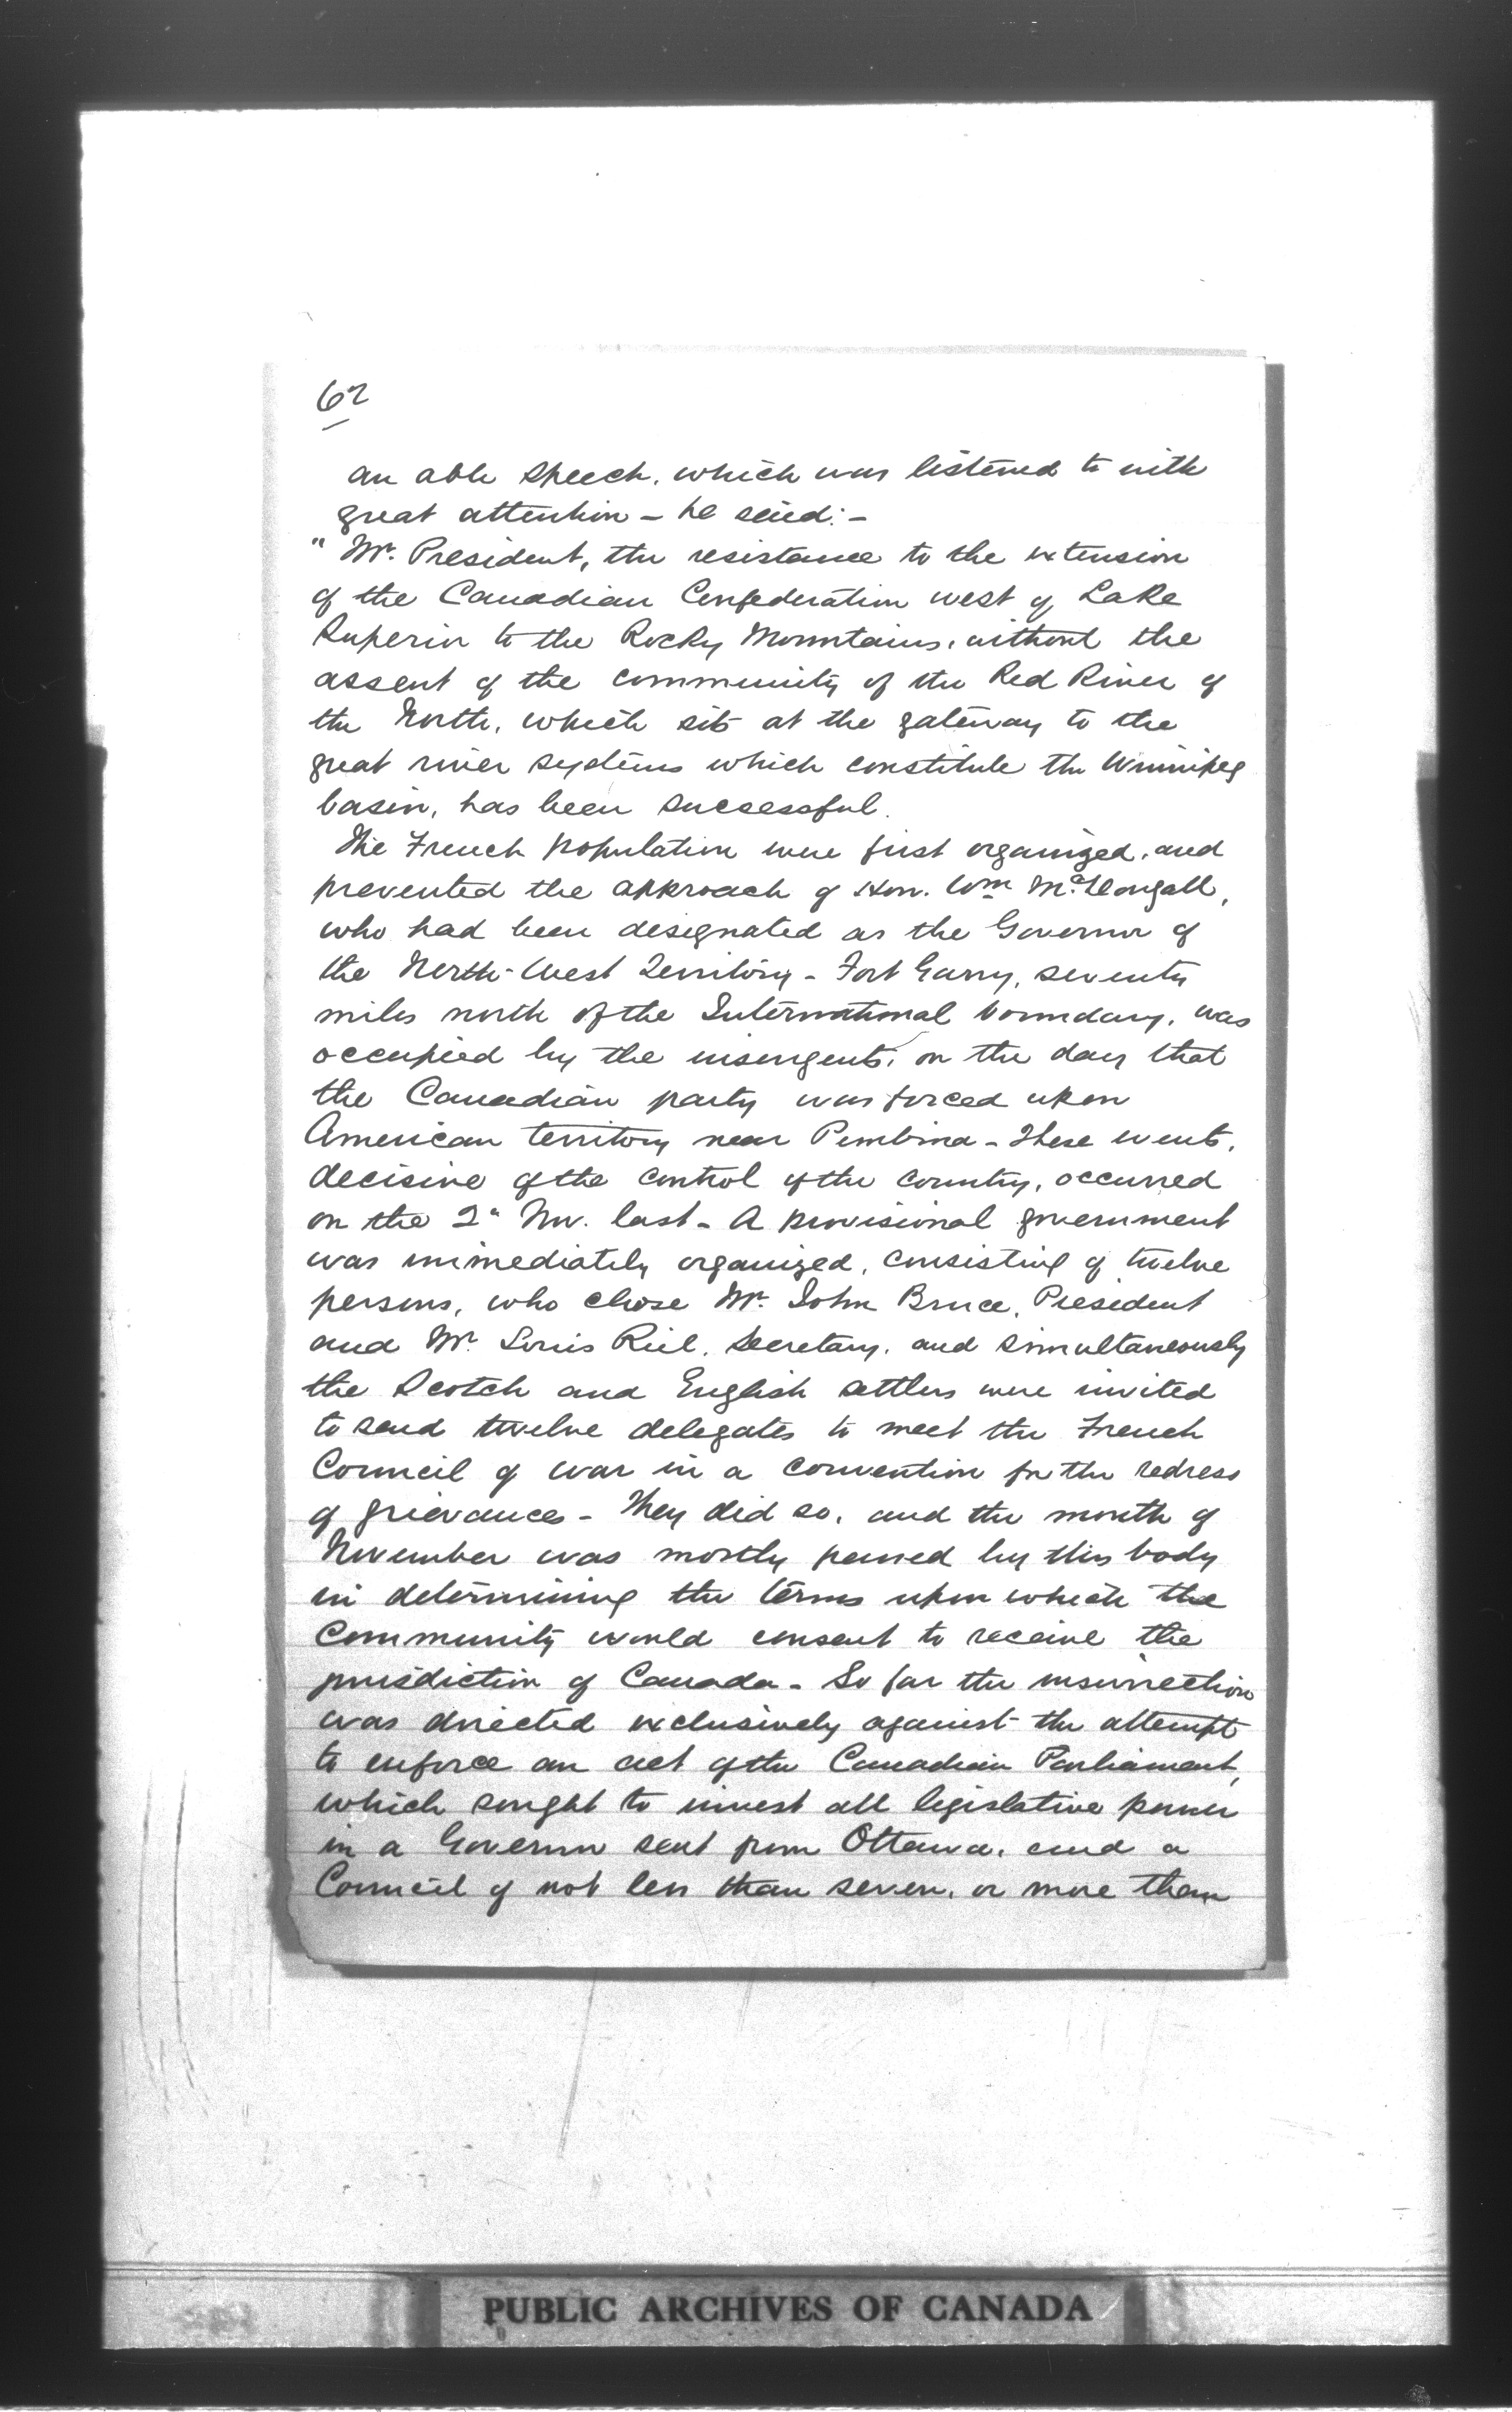 62
an able speech, which was listened to with
great attention - he said: -
" Mr. President, the resistance to the extension
of the Canadian Confederation west of Lake
Superior to the Rocky Mountains, without the
assent of the community of the Red River of
the North, which sits at the gateway to the
great river systems which constitute the Winnipeg
basin, has been successful.
The French population were first organized, and
prevented the approach of Hon. Wm McDougall,
who had been designated as the Governor of
the North-West Territory - Fort Garry, seventy
miles north of the International boundary, was
occupied by the insurgents, on the day that
the Canadian party was forced upon
American territory near Pembina - These events,
decisive of the control of the country, occurred
on the 2" Nov. last - A provisional government
was immediately organized, consisting of twelve
persons, who chose Mr. John Bruce, President
and Mr. Louis Riel, Secretary, and simultaneously
the Scotch and English settlers were invited
to send twelve delegates to meet the French
Council of war in a convention for the redress
of grievances - They did so, and the month of
November was mostly passed by this body
in determining the terms upon which the
Community would consent to receive the
jurisdiction of Canada - So far the insurrection
was directed exclusively against the attempt
to enforce an act of the Canadian Parliament,
which sought to invest all legislative power
in a Governor sent from Ottawa, and a
Council of not less than seven, or more than
PUBLIC ARCHIVES OF CANADA